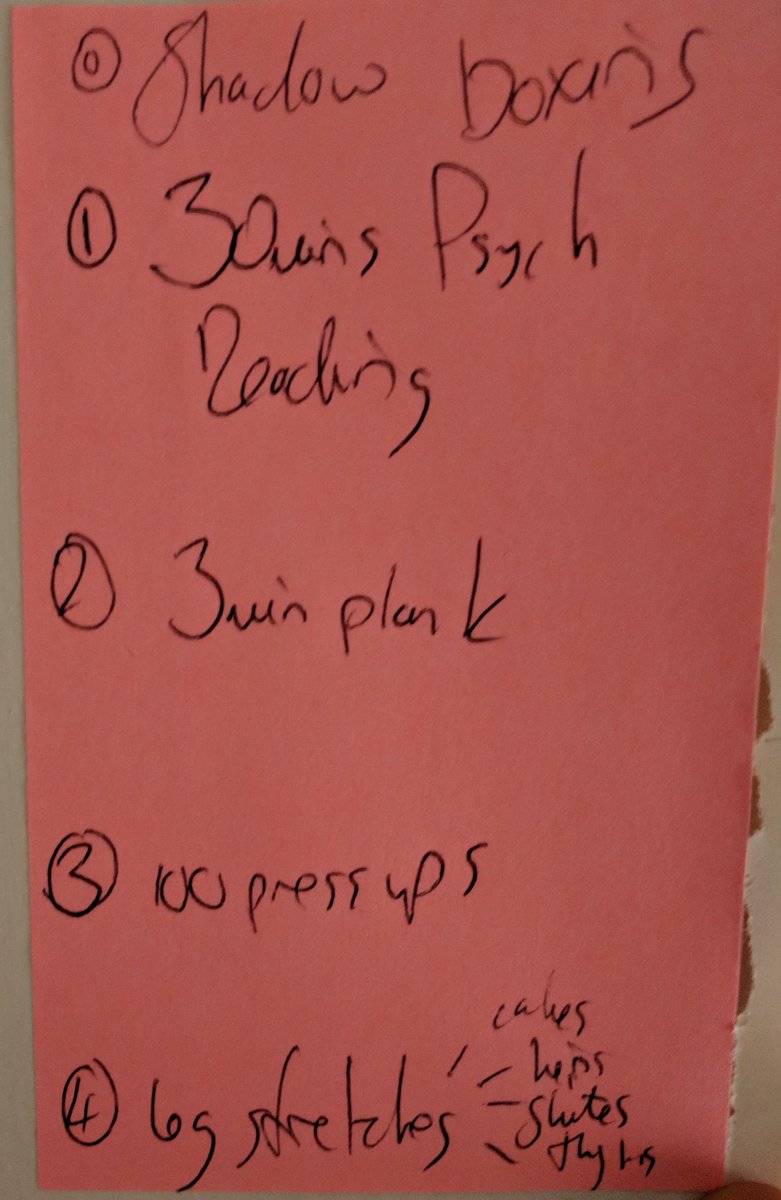 0 Shadow boxing
1 30mins Psych
Reading
2 3min plank
3 100 press ups
calves
4 leg stretches hips
glutes
thighs